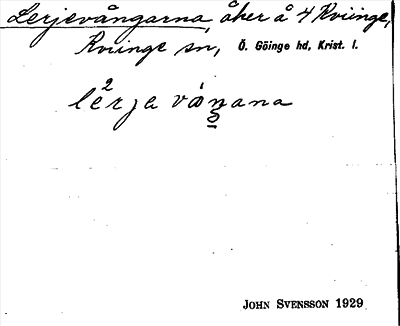 Lerjevångarna, åker å 4 Kviinge,
Kviinge sn, Ö. Göinge hd, Krist. l.
lerja vångana
JOHN SVENSSON 1929